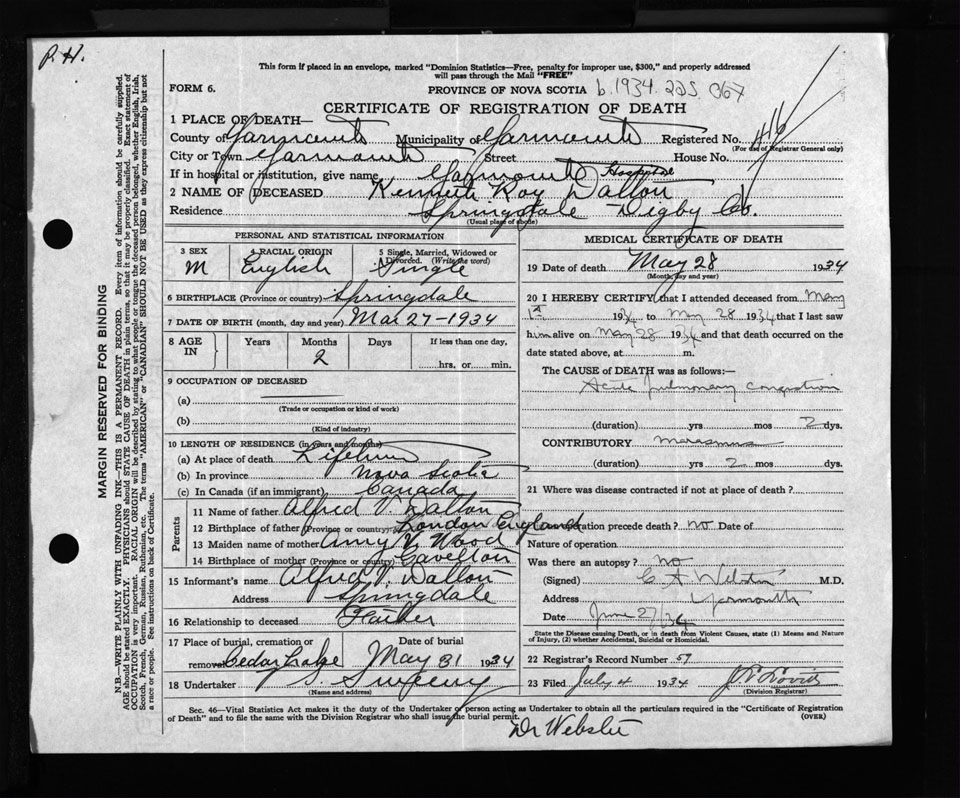 P. H.
This form if placed in an envelope, marked "Dominion Statistics—Free, penalty for improper use, $300," and properly addressed
will pass through the Mail "FREE"
FORM 6.
PROVINCE OF NOVA SCOTIA b.1934. 225 067
CERTIFICATE OF REGISTRATION OF DEATH
1 PLACE OF DEATH—
County of Yarmouth Municipality of Yarmouth Registered No. 416
(For use of Registrar General only)
City or Town Yarmouth Street House No.
If in hospital or institution, give name Yarmouth Hospital
2 NAME OF DECEASED Kenneth Roy Dalton
Residence Springdale Digby Co.
(Usual place of abode)
PERSONAL AND STATISTICAL INFORMATION
3 SEX M
4 RACIAL ORIGIN English
5 Single, Married, Widowed or Divorced. (Write the word) Single
6 BIRTHPLACE (Province or country) Springdale
7 DATE OF BIRTH (month, day and year) Mar 27-1934
8 AGE IN Years Months Days If less than one day,
2 hrs. or min.
9 OCCUPATION OF DECEASED
(a)
(Trade or occupation or kind of work)
(b)
(Kind of industry)
10 LENGTH OF RESIDENCE (in years and months)
(a) At place of death Lifetime
(b) In province Nova Scotia
(c) In Canada (if an immigrant) Canada
Parents
11 Name of father Alfred V. Dalton
12 Birthplace of father (Province or country) London England
13 Maiden name of mother Amy Wood
14 Birthplace of mother (Province or country)
15 Informant's name Alfred V. Dalton
Address Springdale
16 Relationship to deceased Father
17 Place of burial, cremation or removal Cedar Lake Date of burial May 31 1934
18 Undertaker Sweeny
(Name and address)
MEDICAL CERTIFICATE OF DEATH
19 Date of death May 28 1934
(Month, day and year)
20 I HEREBY CERTIFY that I attended deceased from May
1st 1934 to May 28 1934 that I last saw
him alive on May 28 1934 and that death occurred on the
date stated above, at m.
The CAUSE of DEATH was as follows:—
Acute Pulmonary Congestion
(duration) yrs mos 2 dys.
CONTRIBUTORY Marasmus
(duration) yrs 2 mos dys.
21 Where was disease contracted if not at place of death?
operation precede death? no Date of
Nature of operation
Was there an autopsy? no
(Signed) C A Webster M.D.
Address Yarmouth
Date June 27/34
State the Disease causing Death, or in death from Violent Causes, state (1) Means and Nature
of Injury, (2) whether Accidental, Suicidal or Homicidal.
22 Registrar's Record Number 59
23 Filed July 4 1934
(Division Registrar)
Sec. 46—Vital Statistics Act makes it the duty of the Undertaker or person acting as Undertaker to obtain all the particulars required in the "Certificate of Registration
of Death" and to file the same with the Division Registrar who shall issue the burial permit.
(OVER)
Dr Webster
MARGIN RESERVED FOR BINDING
N.B.—WRITE PLAINLY WITH UNFADING INK—THIS IS A PERMANENT RECORD. Every item of information should be carefully supplied.
AGE should be stated EXACTLY. PHYSICIANS should STATE CAUSE OF DEATH in plain terms, so that it may be properly classified. Exact statement of
OCCUPATION is very important. RACIAL ORIGIN will be described by stating to what people or tongue the deceased person belonged, whether English, Irish,
Scotch, French, German, Russian, Ruthenian, etc. The terms "AMERICAN" or "CANADIAN" SHOULD NOT BE USED as they express citizenship but not
a race or people. See instructions on back of Certificate.